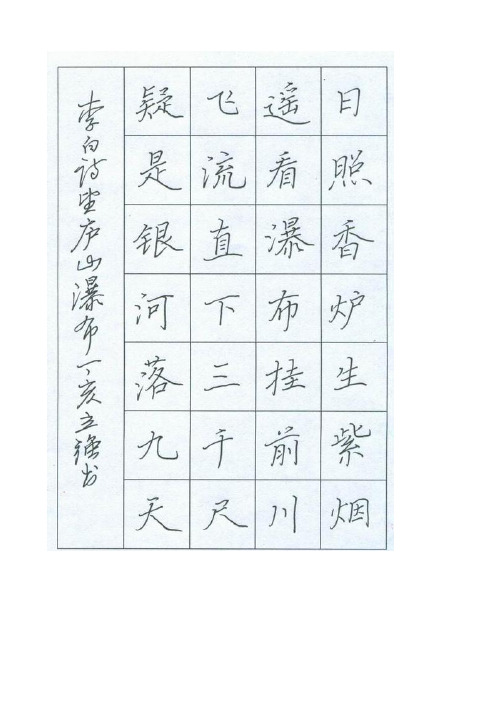 日照香炉生紫烟
遥看瀑布挂前川
飞流直下三千尺
疑是银河落九天
李白诗望庐山瀑布丁亥立强书